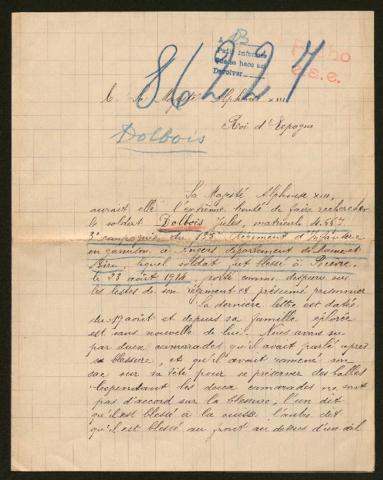 A
Pedir informes
cuando hace así
Devolver
Fecho
a.e.
86227
A Sa Majesté Alphonse XIII
Roi d'Espagne
Dolbois
Sa Majesté Alphonse XIII,
aurait elle l'extrême bonté de faire rechercher
le soldat Dolbois Jules, matricule
3e compagnie du 135e régiment d'Infanterie
en garnison à Angers département de Maine et
Loire, lequel soldat fut blessé à
le 23 août 1914, porté comme disparu sur
les listes de son régiment et présumé prisonnier
Sa dernière lettre est datée
du 17 août et depuis sa famille éplorée
est sans nouvelle de lui. Nous avons su
par deux camarades qu'il avait parlé après
sa blessure, et qu'il avait ramené son
sac sur sa tête pour se préserver des balles
Cependant les deux camarades ne sont
pas d'accord sur la blessure, l'un dit
qu'il est blessé à la cuisse l'autre dit
qu'il est blessé au front au dessus d'un œil